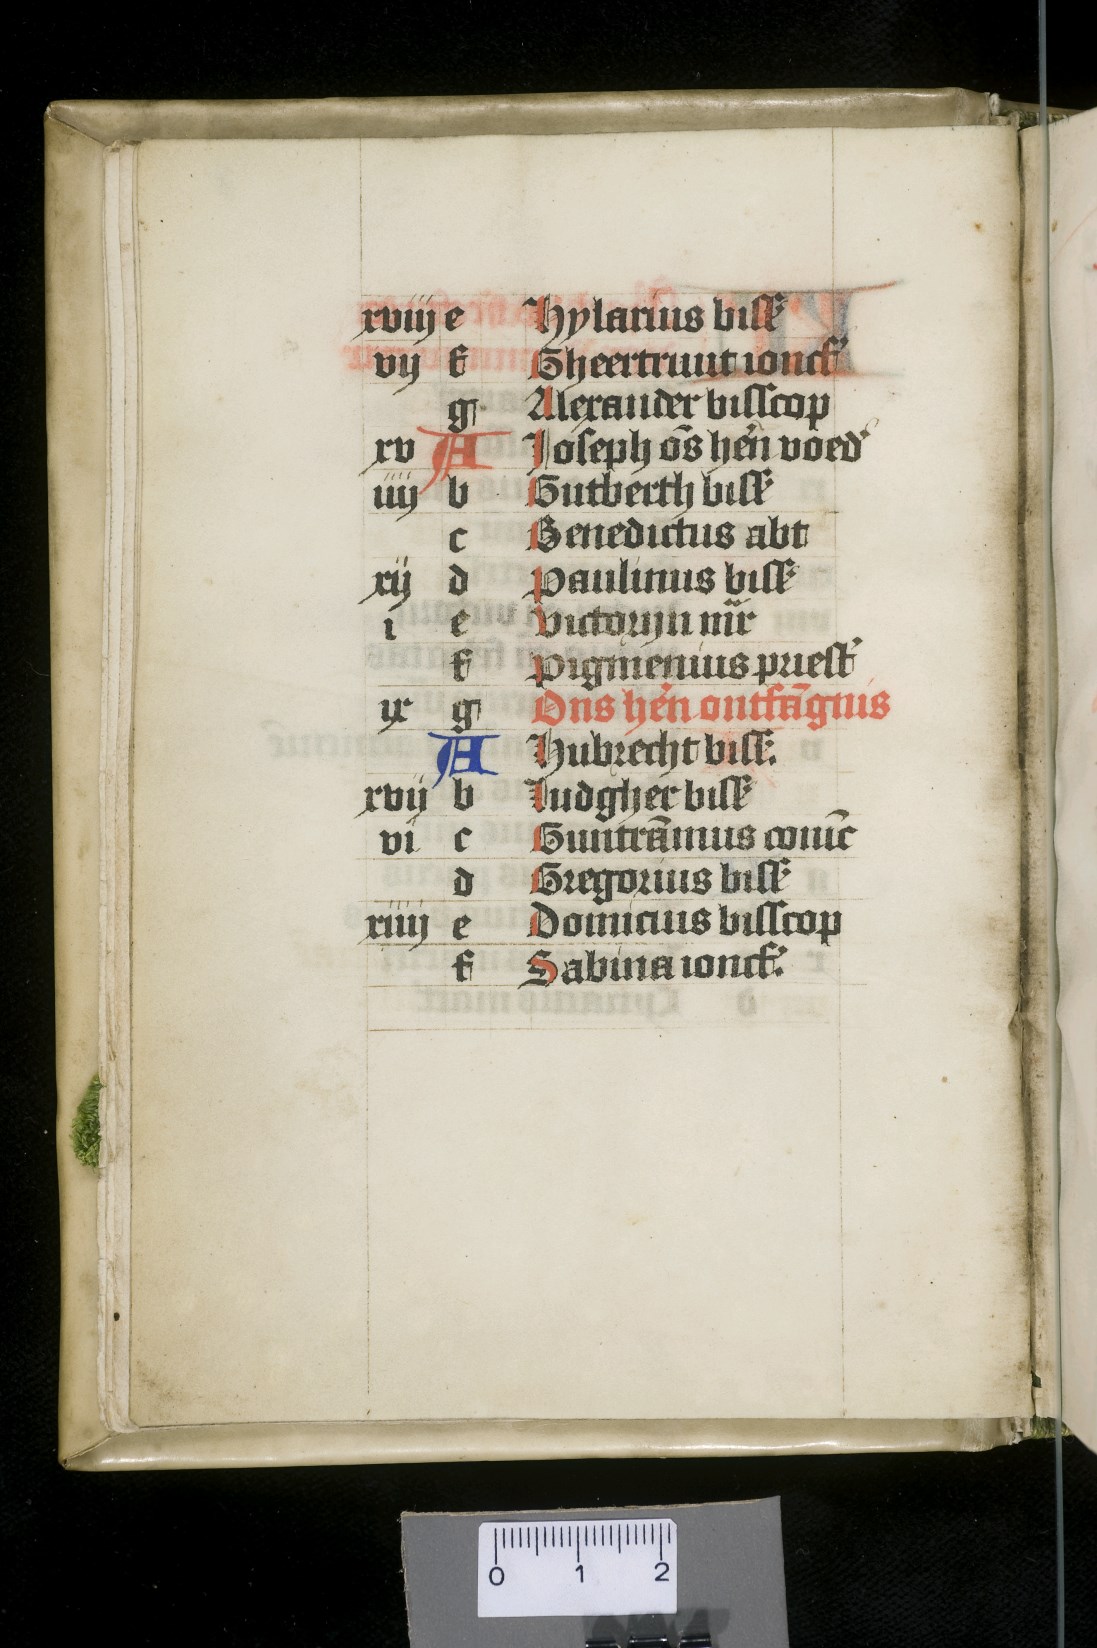 xviij e Hylarius bissc̄
vij f Gheertruut ioncf'
g Alexander bisscop
xv A Joseph ōs hēn voed'
iiij b Gutberth bissc̄
c Benedictus abt
xij d Paulinus bissc̄
i e Victorijn mr̄
f Pigmenius priest'
ix g Ons hēn ontfāgnis
A Hubrecht bissc̄.
xvij b ludgher bissc̄
vi c Guntrāmus coninc̄
d Gregorius bissc̄
xiiij e Domicius bisscop
f Sabina ioncf'.
0 1 2